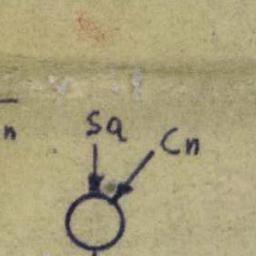 n
Sa Cn